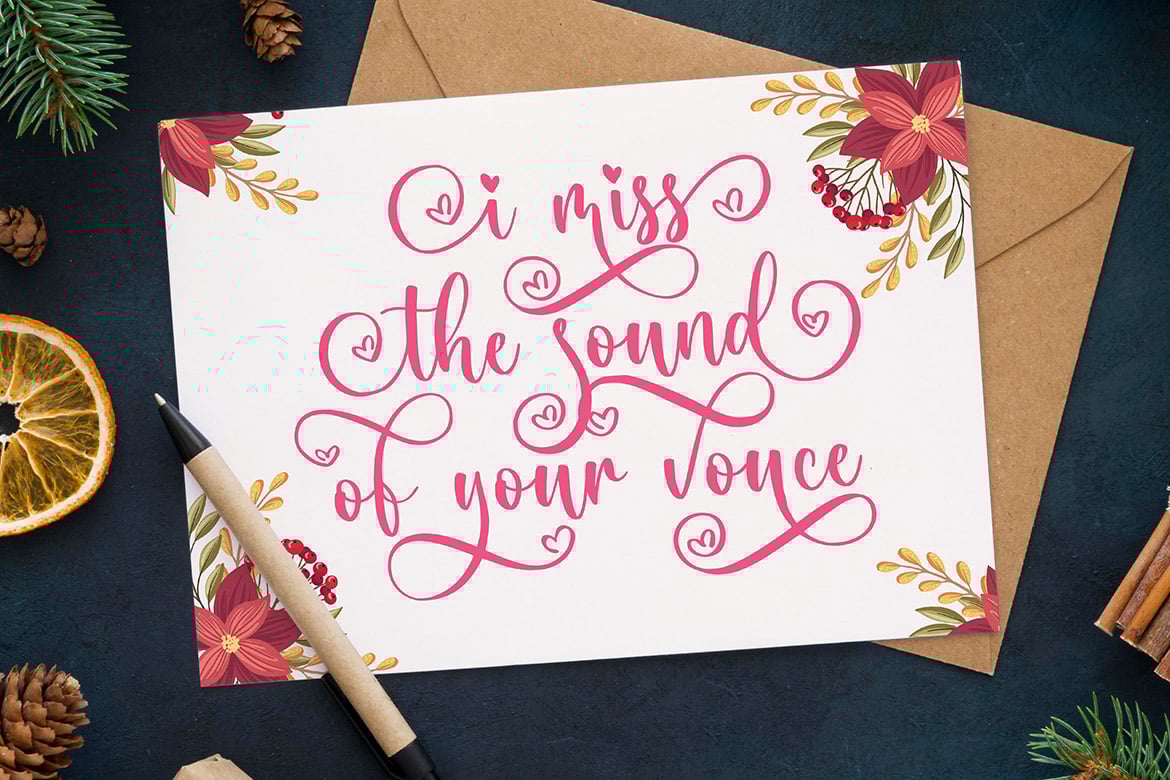 i miss
the sound
of your voyce